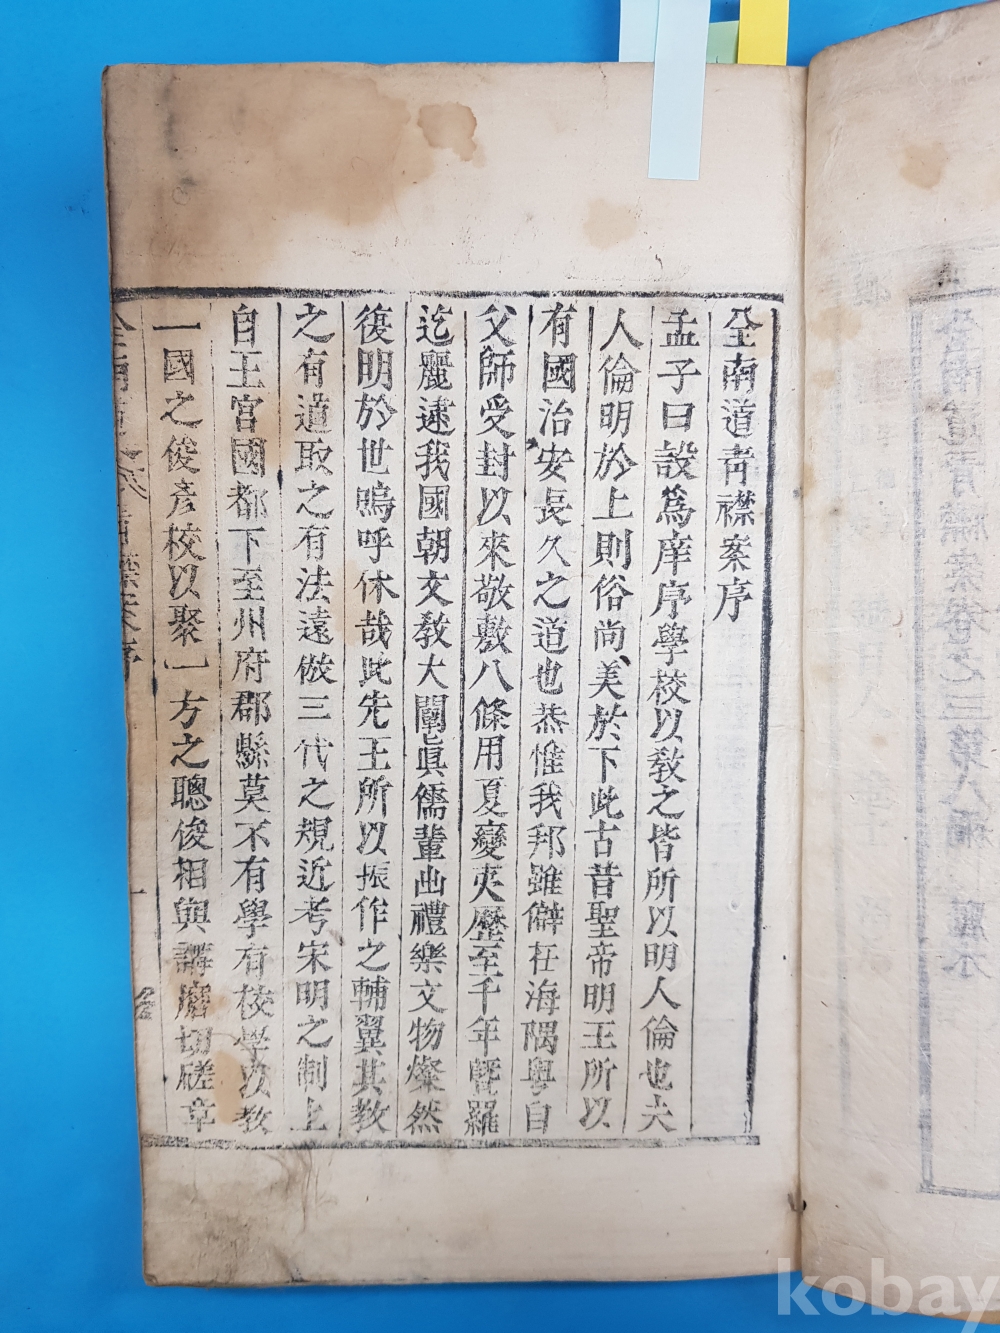 全南道靑襟案序
孟子曰設爲庠序學校以敎之皆所以明人倫也夫
人倫明於上則俗尚美於下此古昔聖帝明王所以
有國治安長久之道也恭惟我邦雖僻在海隅粤自
父師受封以來敬敷八條用夏變夷歷至千年曁羅
迄麗逮我國朝文敎大闡眞儒輩出禮樂文物燦然
復明於世嗚呼休哉此先王所以振作之輔翼其敎
之有道取之有法遠倣三代之規近考宋明之制上
自王宮國都下至州府郡縣莫不有學有校學以敎
一國之俊彦校以聚一方之聰俊相與講磨切磋章
kobay